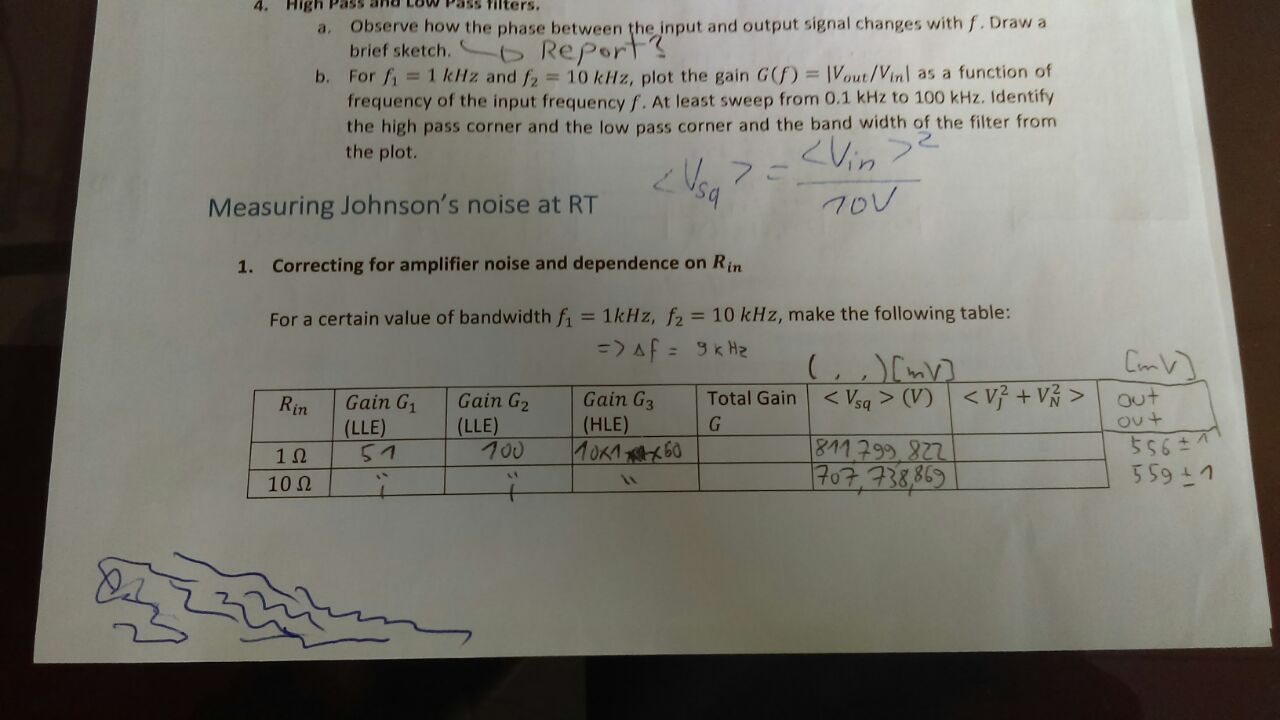 4. High Pass and Low Pass filters.
a. Observe how the phase between the input and output signal changes with f. Draw a
brief sketch. → Report?
b. For f₁ = 1 kHz and f₂ = 10 kHz, plot the gain G(f) = |Vout/Vin| as a function of
frequency of the input frequency f. At least sweep from 0.1 kHz to 100 kHz. Identify
the high pass corner and the low pass corner and the band width of the filter from
the plot.
<Vsq> = <Vin>² / 10V
Measuring Johnson's noise at RT
1. Correcting for amplifier noise and dependence on Rin
For a certain value of bandwidth f₁ = 1kHz, f₂ = 10 kHz, make the following table:
=> Δf = 9 kHz
( , , ) [mV] [mV]
Rin Gain G₁ Gain G₂ Gain G₃ Total Gain <Vsq> (V) <V_J² + V_N²> out
(LLE) (LLE) (HLE) G out
1 Ω 51 100 10x1 x60 811,799,822 556 ± 1
10 Ω " " " 707,738,869 559 ± 1